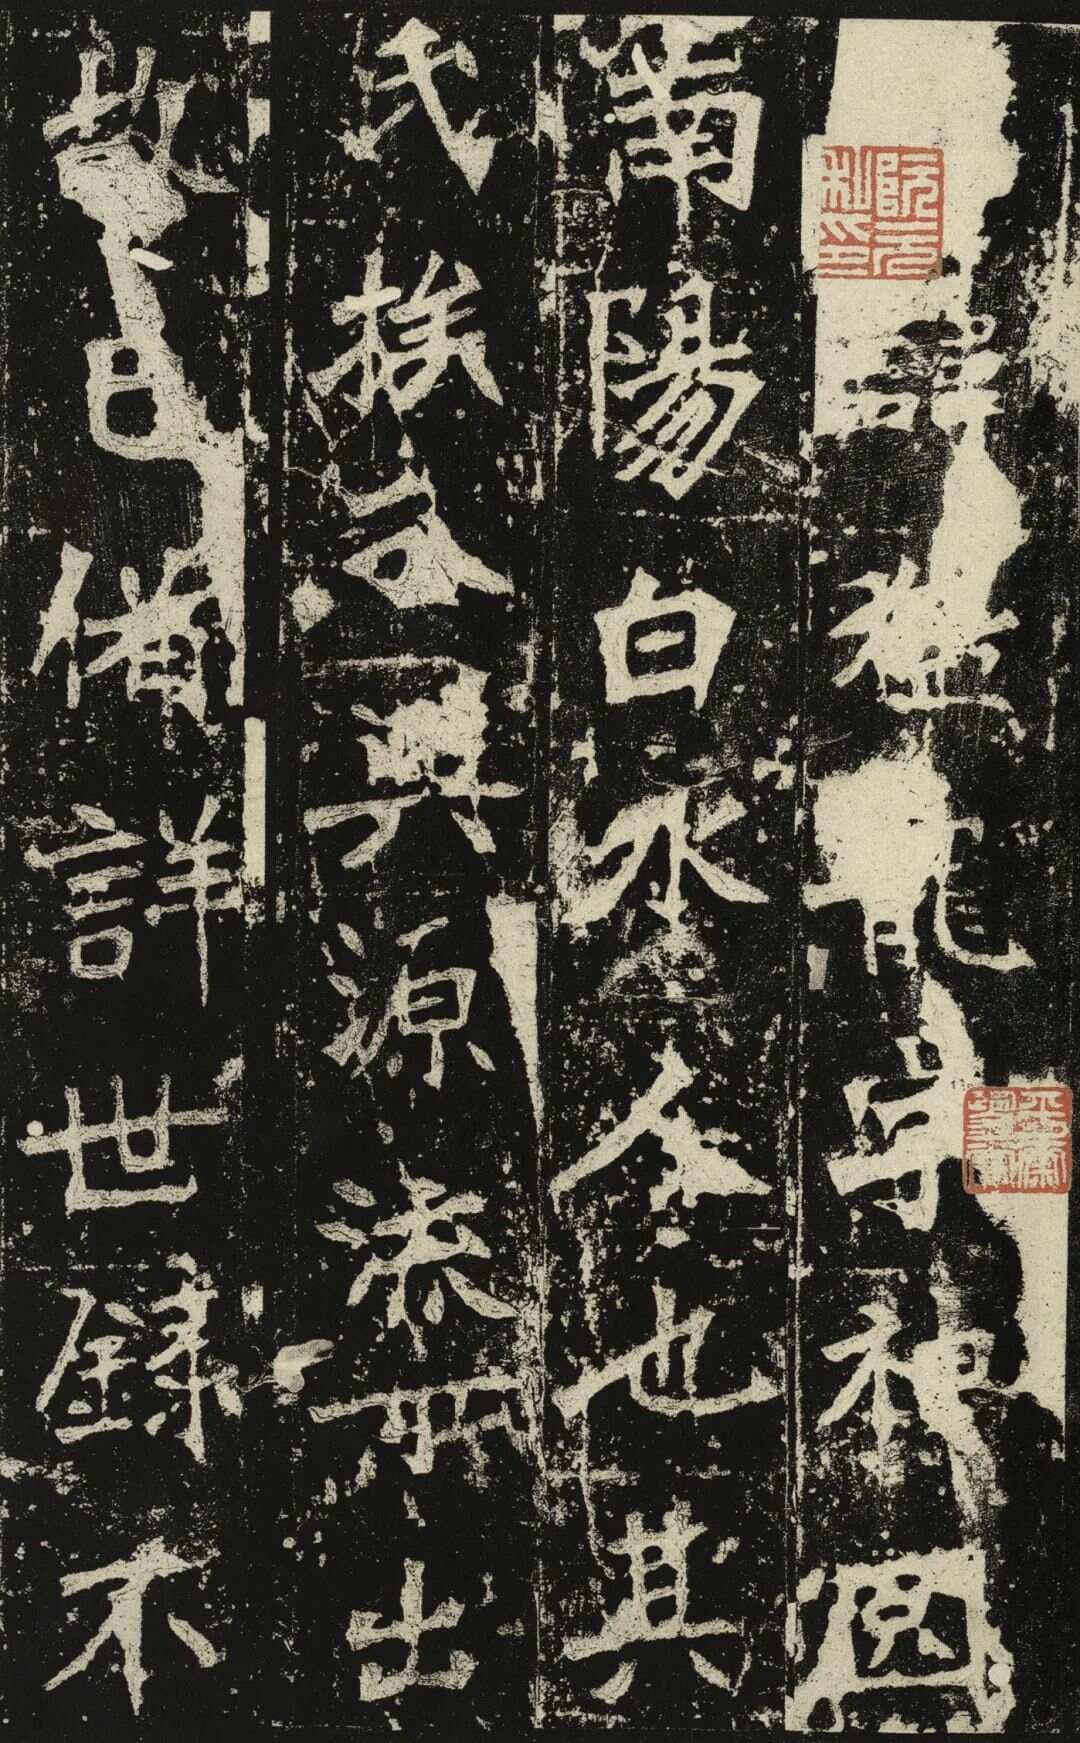 諱猛龍字神囧
南陽白水人也其
氏族分興源流所出
故已備詳世錄不
阮元私印